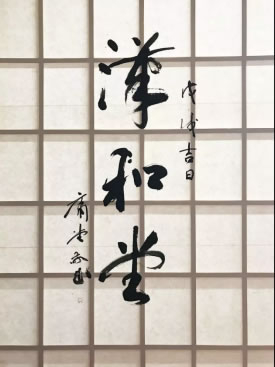 戊戌吉日
澤和堂